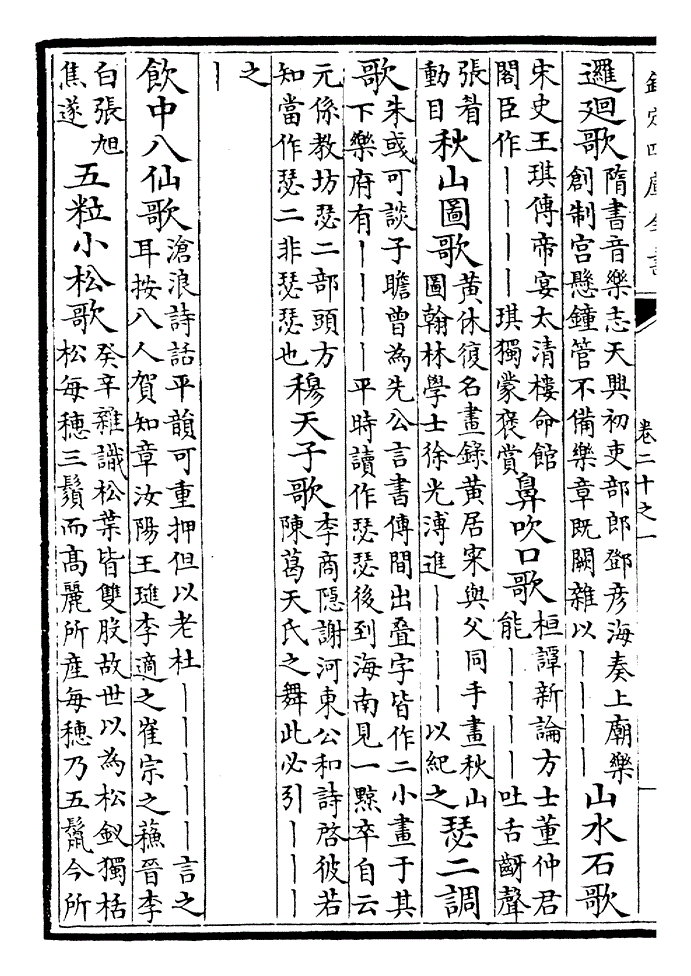 欽定四庫全書 卷二十之一
邏廻歌 隋書音樂志天興初吏部郎鄧彦海奏上廟樂
創制宫懸鐘管不備樂章既闕雜以｜｜｜ 山水石歌
宋史王琪傳帝宴太清樓命館
閣臣作｜｜｜｜琪獨蒙褒賞 鼻吹口歌 桓譚新論方士董仲君
能｜｜｜｜吐舌齖聲
張睂
動目 秋山圖歌 黄休復名畫錄黄居寀與父同手畫秋山
圖翰林學士徐光溥進｜｜｜｜以紀之 瑟二調
歌 朱彧可談子瞻曾為先公言書傳間出叠字皆作二小畫于其
下樂府有｜｜｜｜平時讀作瑟瑟後到海南見一黥卒自云
元係教坊瑟二部頭方
知當作瑟二非瑟瑟也 穆天子歌 李商隱謝河東公和詩啓彼若
陳葛天氏之舞此必引｜｜｜
之
｜
飲中八仙歌 滄浪詩話平韻可重押但以老杜｜｜｜｜｜言之
耳按八人賀知章汝陽王璡李適之崔宗之蘇晉李
白張旭
焦遂 五粒小松歌 癸辛雜識松葉皆雙股故世以為松釵獨栝
松每穗三鬚而髙麗所産每穗乃五鬛今所